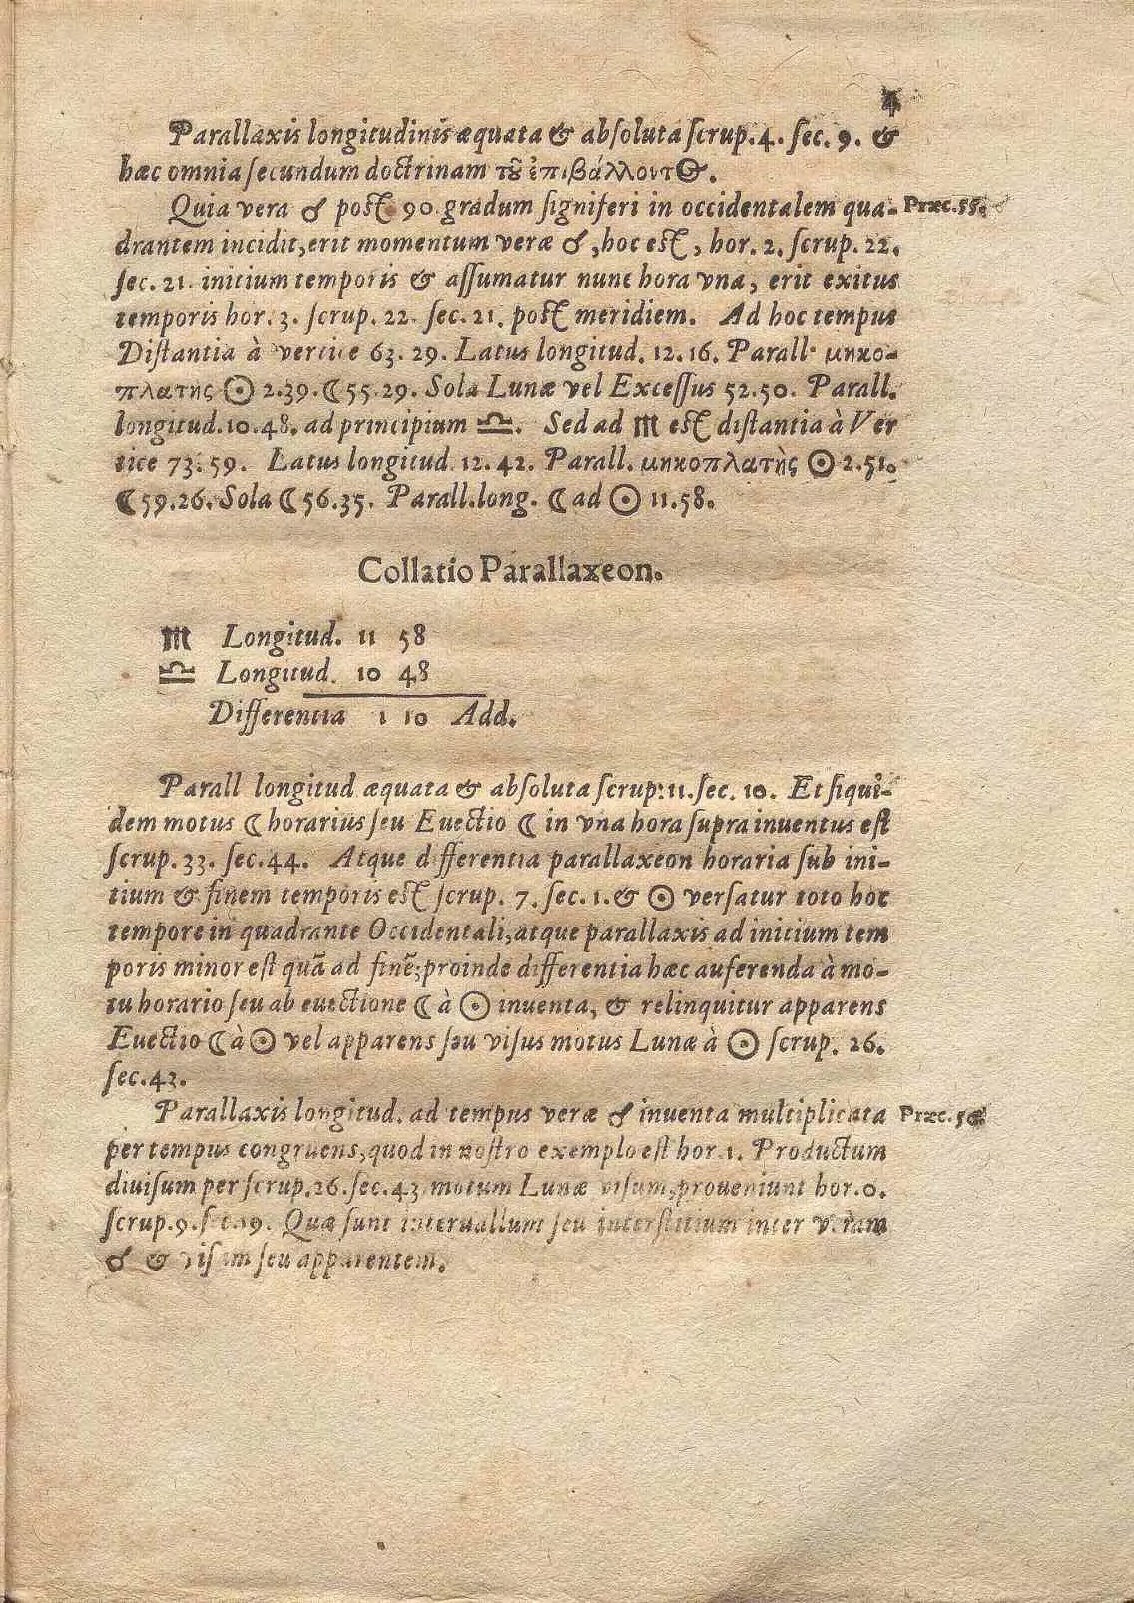 Parallaxis longitudinis æquata & absoluta scrup. 4. sec. 9. &
hæc omnia secundum doctrinam τȣ͂ ἐπιβάλλοντ⊙.
Quia vera ☌ post 90. gradum signiferi in occidentalem qua- Præc. 55.
drantem incidit, erit momentum veræ ☌, hoc est, hor. 2. scrup. 22.
sec. 21. initium temporis & assumatur nunc hora vna, erit exitus
temporis hor. 3. scrup. 22. sec. 21. post meridiem. Ad hoc tempus
Distantia à vertice 63. 29. Latus longitud. 12. 16. Parall. μηκο-
πλατης ☉ 2.39. ☾ 55.29. Sola Lunæ vel Excessus 52.50. Parall.
longitud. 10.48. ad principium ♎. Sed ad ♏ est distantia à Ver
tice 73. 59. Latus longitud. 12. 42. Parall. μηκοπλατὴς ☉ 2.51.
☾ 59.26. Sola ☾ 56.35. Parall. long. ☾ ad ☉ 11.58.
Collatio Parallaxeon.
♏ Longitud. 11 58
♎ Longitud. 10 48
Differentia 1 10 Add.
Parall longitud æquata & absoluta scrup: 11. sec. 10. Et siqui-
dem motus ☾ horarius seu Euectio ☾ in vna hora supra inuentus est
scrup. 33. sec. 44. Atque differentia parallaxeon horaria sub ini-
tium & finem temporis est scrup. 7. sec. 1. & ☉ versatur toto hoc
tempore in quadrante Occidentali, atque parallaxis ad initium tem
poris minor est quã ad finẽ; proinde differentia hæc auferenda à mo-
tu horario seu ab euectione ☾ à ☉ inuenta, & relinquitur apparens
Euectio ☾ à ☉ vel apparens seu visus motus Lunæ à ☉ scrup. 26.
sec. 43.
Parallaxis longitud. ad tempus veræ ☌ inuenta multiplicata Præc. 56.
per tempus congruens, quod in nostro exemplo est hor. 1. Productum
diuisum per scrup. 26. sec. 43. motum Lunæ visum, proueniunt hor. 0.
scrup. 9. sec. 19. Quæ sunt interuallum seu interstitium inter veram
☌ & visam seu apparentem.